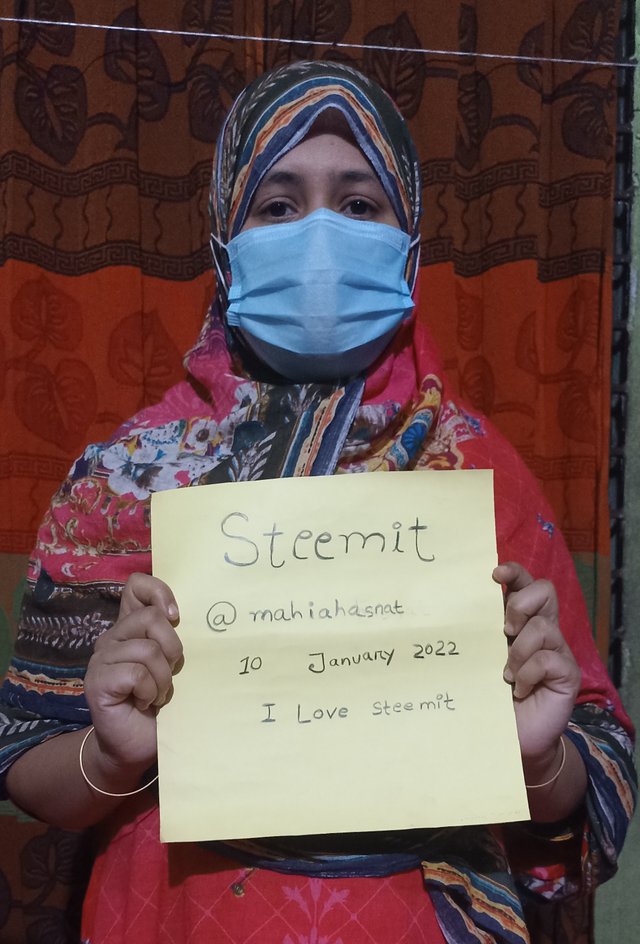 Steemit
@ mahiahasnat
10 January 2022
I Love steemit